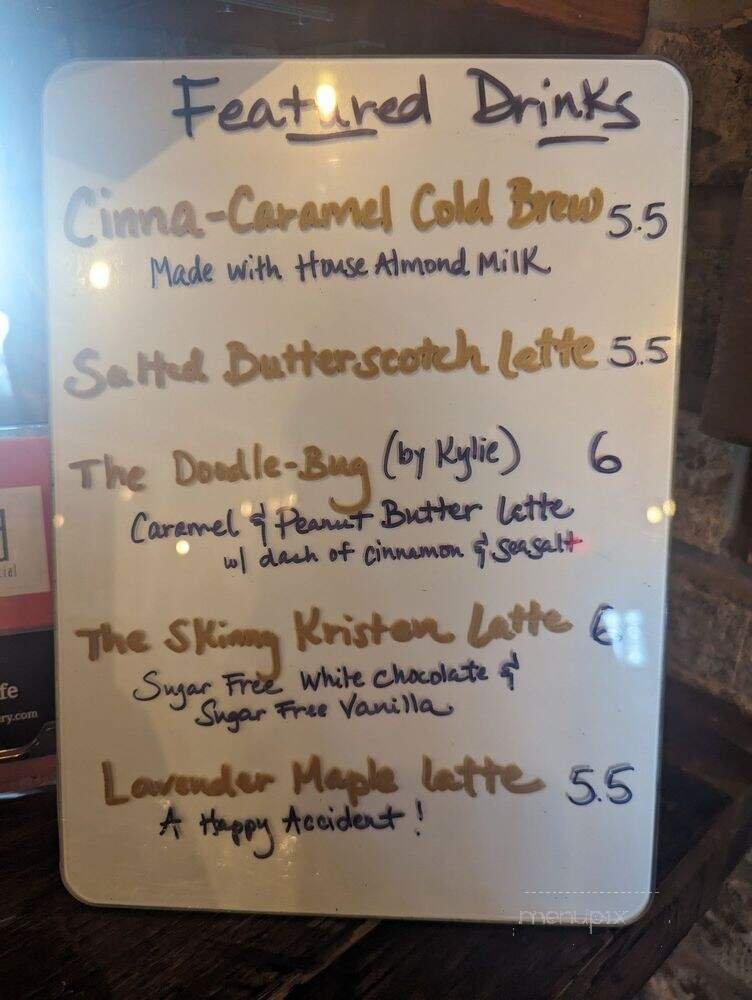 Featured Drinks
Cinna-Caramel Cold Brew 5.5
Made with House Almond Milk
Salted Butterscotch Latte 5.5
The Doodle-Bug (by Kylie) 6
Caramel & Peanut Butter Latte
w/ dash of cinnamon & seasalt
The Skinny Kristen Latte 6
Sugar Free White Chocolate &
Sugar Free Vanilla
Lavender Maple latte 5.5
A Happy Accident!
fe
ry.com
menupix